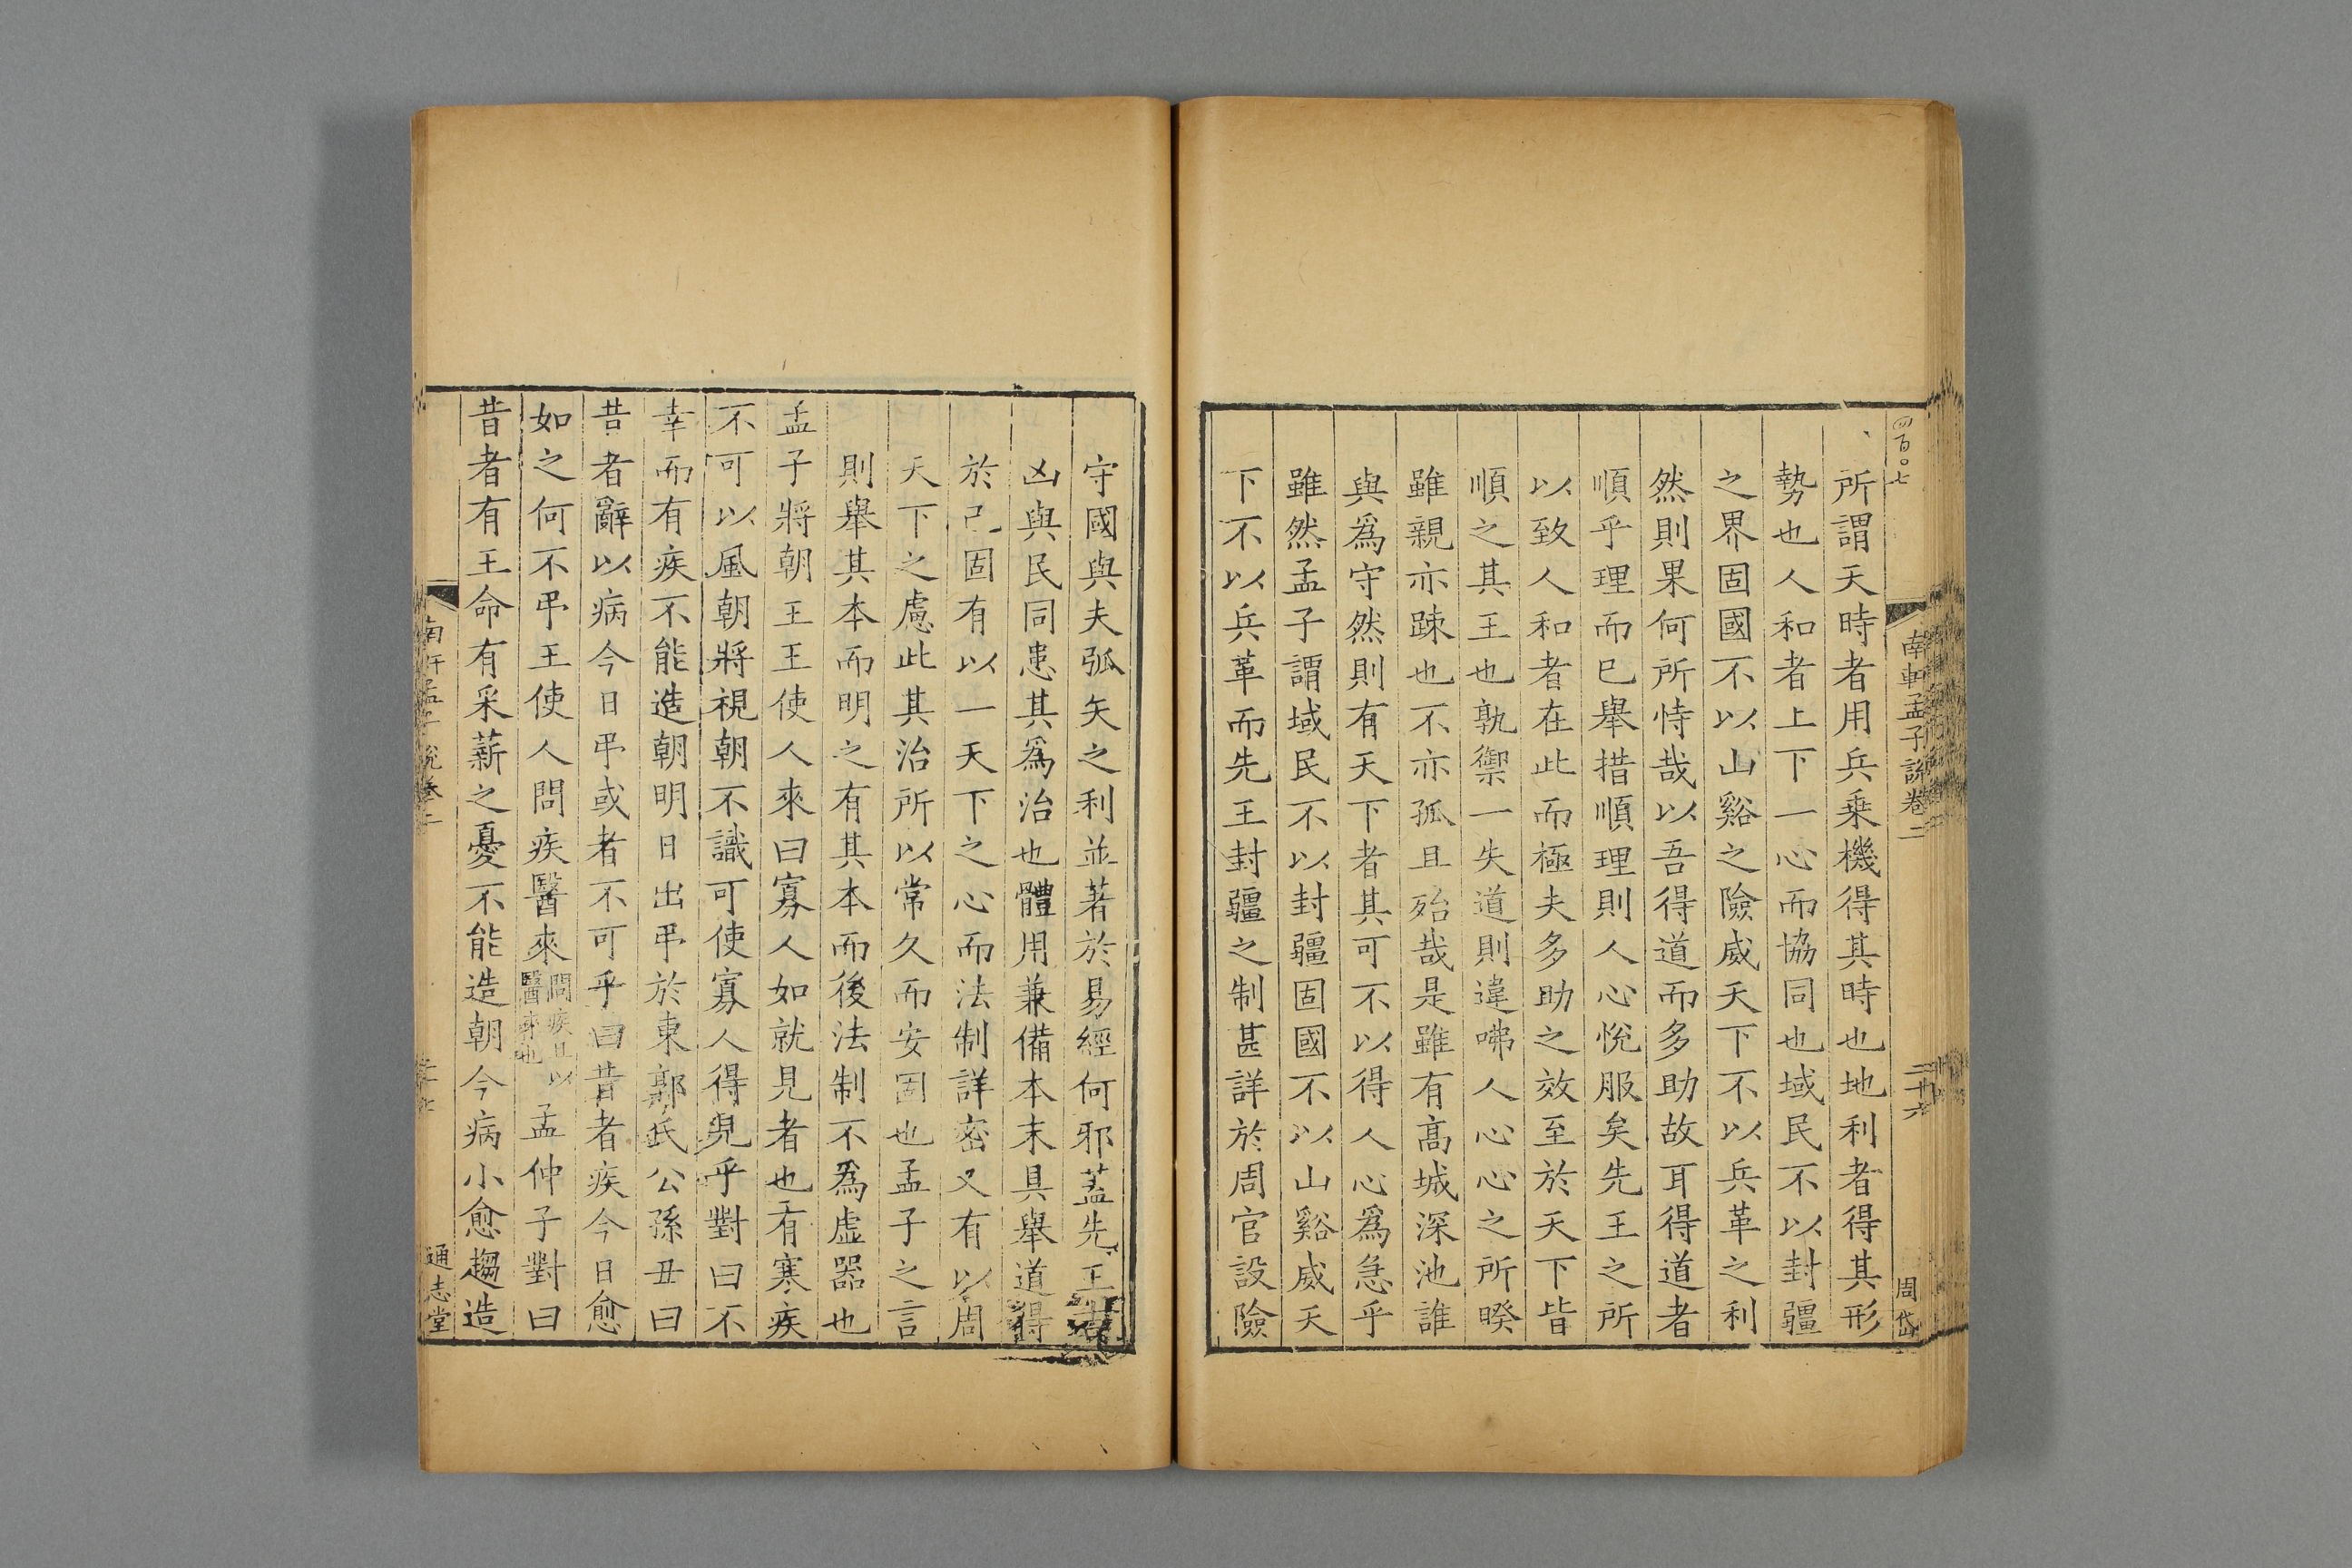 四百〇七
南軒孟子說卷二
二十六
周岱
所謂天時者用兵乗機得其時也地利者得其形
勢也人和者上下一心而協同也域民不以封疆
之界固國不以山谿之險威天下不以兵革之利
然則果何所恃哉以吾得道而多助故耳得道者
順乎理而已舉措順理則人心悅服矣先王之所
以致人和者在此而極夫多助之效至於天下皆
順之其王也孰禦一失道則違咈人心心之所暌
雖親亦踈也不亦孤且殆哉是雖有高城深池誰
與爲守然則有天下者其可不以得人心爲急乎
雖然孟子謂域民不以封疆固國不以山谿威天
下不以兵革而先王封疆之制甚詳於周官設險
守國與夫弧矢之利並著於易經何邪蓋先王
凶與民同患其爲治也體用兼備本末具舉道得
於己固有以一天下之心而法制詳密又有以周
天下之慮此其治所以常久而安固也孟子之言
則舉其本而明之有其本而後法制不爲虛器也
孟子將朝王王使人來曰寡人如就見者也有寒疾
不可以風朝將視朝不識可使寡人得見乎對曰不
幸而有疾不能造朝明日出弔於東郭氏公孫丑曰
昔者辭以病今日弔或者不可乎曰昔者疾今日愈
如之何不弔王使人問疾醫來問疾且以醫來也孟仲子對曰
昔者有王命有采薪之憂不能造朝今病小愈趨造
南軒孟子說卷二
通志堂